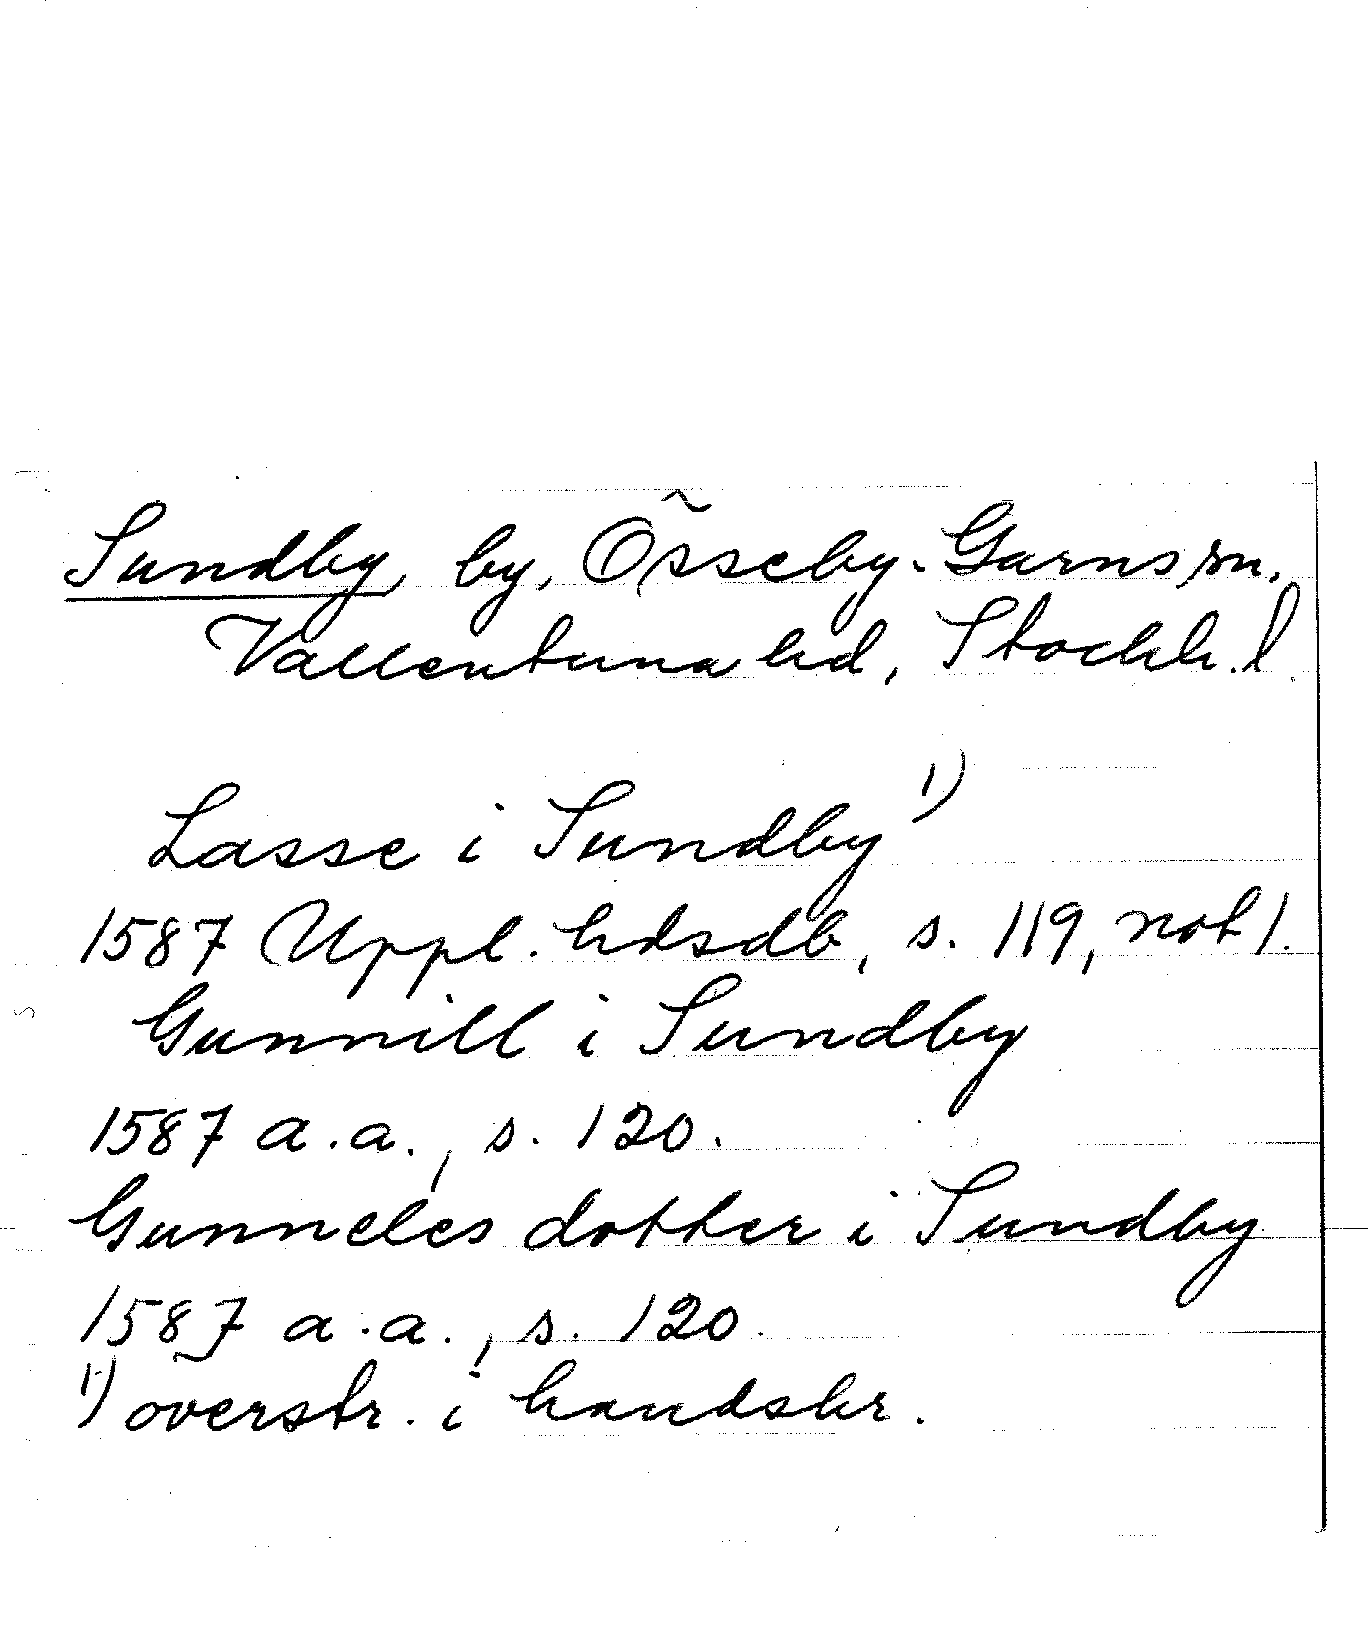 Sundby, by, Össeby-Garns sn.
Vallentuna hd, Stockh. l.
Lasse i Sundby 1)
1587 Uppl. hdsdb, s. 119, not 1.
Gunnill i Sundby
1587 a.a., s. 120.
Gunneles dotter i Sundby
1587 a.a., s. 120.
1) överstr. i handskr.